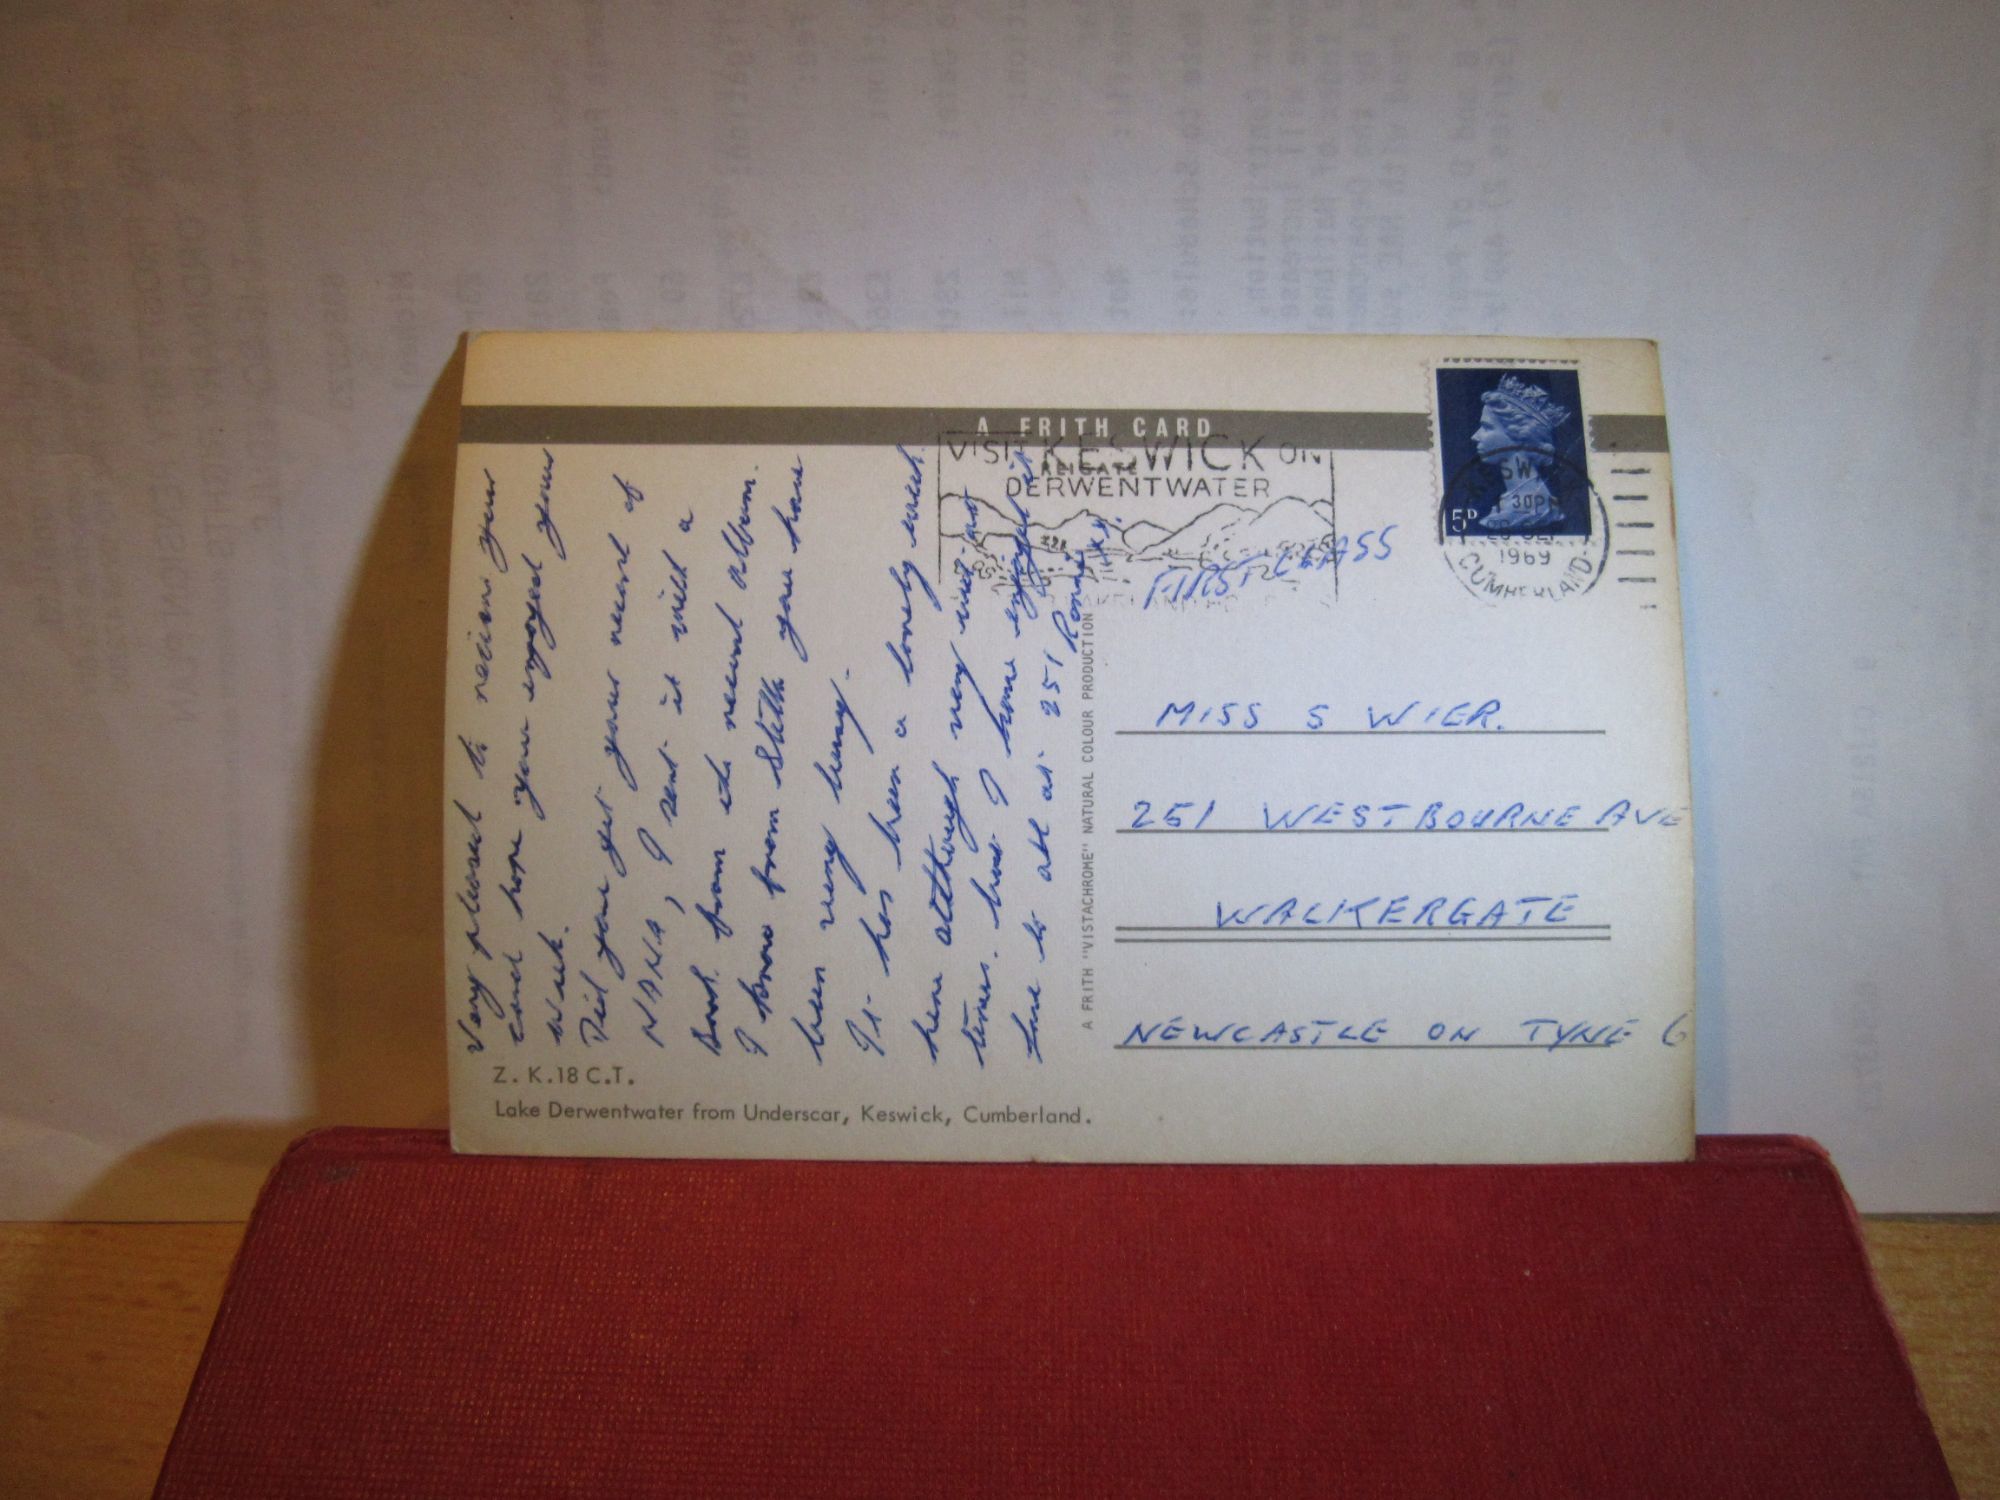 A FRITH CARD
REIGATE
VISIT KESWICK ON
DERWENTWATER
5D
KESWICK
30PM
1969
CUMBERLAND
FIRST CLASS
Very pleased to receive your
card hope you enjoyed your
week.
Did you get your record of
NANA, I sent it with a
Book from the record album.
I know from Stella you have
been very busy.
It has been a lovely week
here although very wet at
times. but I have enjoyed it
Love to all at 251 Ronnie
A FRITH "VISTACHROME" NATURAL COLOUR PRODUCTION
MISS S WIER.
251 WESTBOURNE AVE
WALKERGATE
NEWCASTLE ON TYNE 6
Z. K.18 C.T.
Lake Derwentwater from Underscar, Keswick, Cumberland.